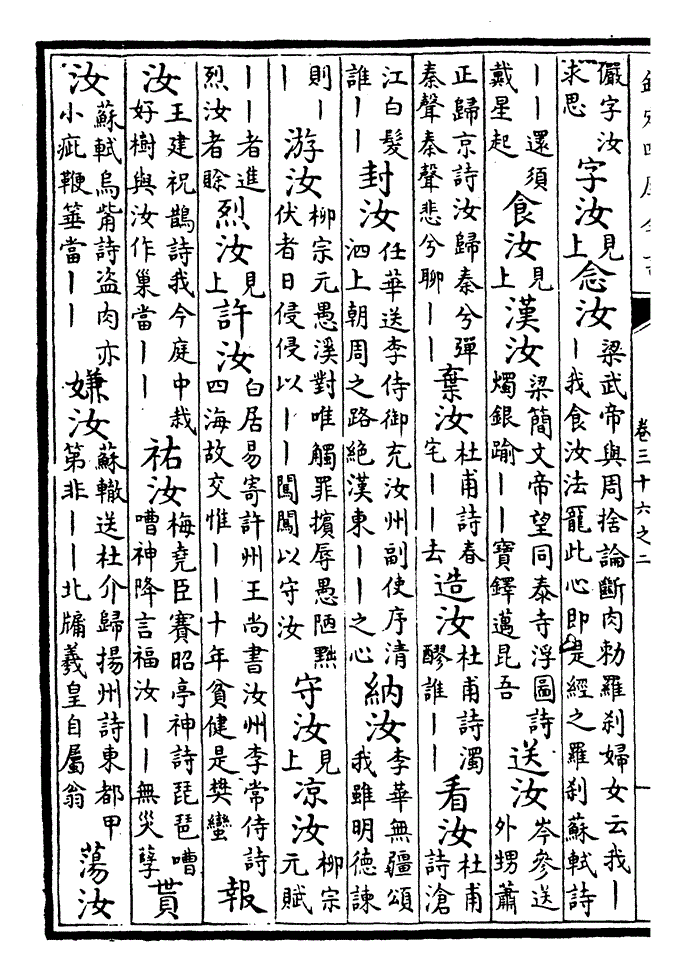 卷三十六之二
儼字汝求思 字汝 見上 念汝 梁武帝與周捨論斷肉勅羅刹婦女云我丨丨我食汝法寵此心即是經之羅刹蘇軾詩
丨丨還須戴星起 食汝 見上 漢汝 梁簡文帝望同泰寺浮圖詩燭銀踰丨丨寶鐸邁昆吾 送汝 岑參送外甥蕭
正歸京詩汝歸秦兮彈秦聲秦聲悲兮聊丨丨 棄汝 杜甫詩春宅丨丨去 造汝 杜甫詩濁醪誰丨丨 看汝 杜甫詩滄
江白髮誰丨丨 封汝 任華送李侍御充汝州副使序清泗上朝周之路絕漢東丨丨之心 納汝 李華無疆頌我雖明德諫
則丨丨 游汝 柳宗元愚溪對唯觸罪擯辱愚陋黜伏者日侵侵以丨丨闖闖以守汝 守汝 見上 凉汝 柳宗元賦
丨丨者進烈汝者賒 烈汝 見上 許汝 白居易寄許州王尚書汝州李常侍詩四海故交惟丨丨十年貧健是樊蠻 報
汝 王建祝鵲詩我今庭中栽好樹與汝作巢當丨丨 祐汝 梅堯臣賽昭亭神詩琵琶嘈嘈神降言福汝丨丨無災孽 貰
汝 蘇軾烏觜詩盗肉亦小疵鞭箠當丨丨 嫌汝 蘇轍送杜介歸揚州詩東都甲第非丨丨北牖羲皇自屬翁 蕩汝